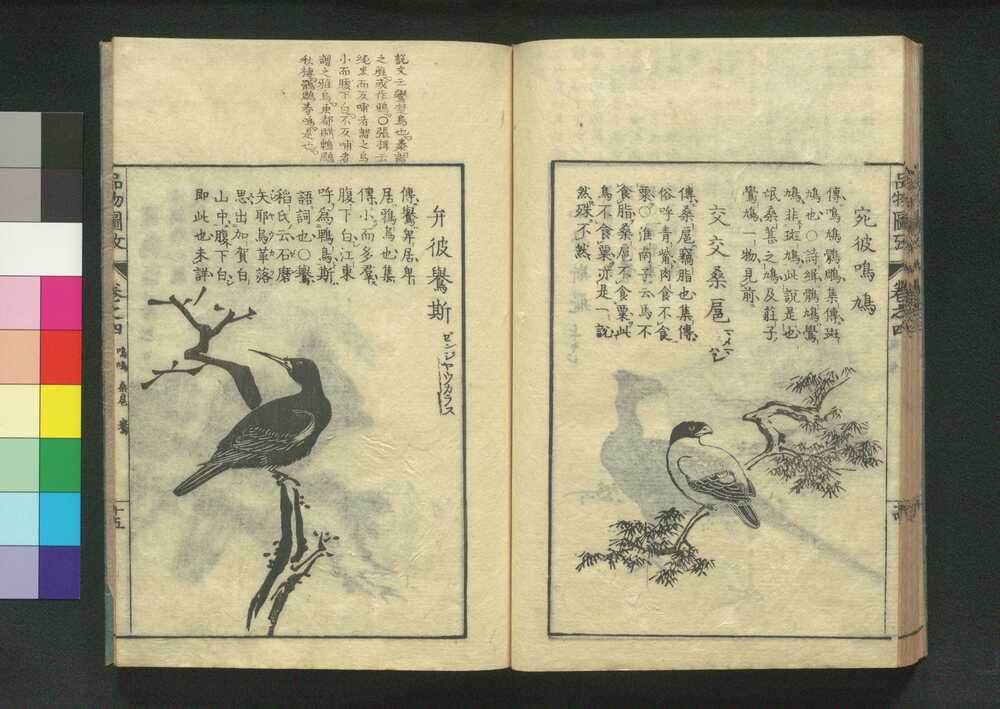 宛彼鳴鳩
傳鳴鳩鶻鵰集傳斑
鳩也○詩緝鶻鳩鷽
鳩非斑鳩此說是也
氓桑葚之鳩及莊子
鷽鳩一物見前
交交桑扈
マメマハシ
傳桑扈竊脂也集傳
俗呼青觜肉食不食
粟○淮南子云馬不
食脂桑扈不食粟此
鳥不食粟亦是一說
然猽不然
品物圖攷
卷之四
說文云鷽卑居也秦謂
之雅或作鴉○張揖云
純黑而反哺者謂之烏
小而腹下白不反哺者
謂之雅烏
弁彼鷽斯
ビンジヤウカラス
傳鷽卑居卑
居雅烏也集
傳小而多羣
腹下白江東
呼爲鵯烏斯
語詞也○鷽
稻氏云石磨
矢耶烏革落
思出加賀白
山中腹下白
即此也未詳
品物圖攷
卷之四
鳴鳩 桑扈 鷽
十五